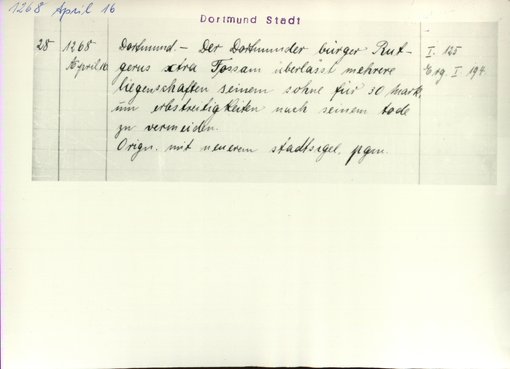 1268 April 16
Dortmund Stadt
28 1268 Dortmund. - Der Dortmunder bürger Rut- I. 125
April 16 gerus xtra Fossam überlässt mehrere Erg. I. 194.
liegenschaften seinem sohne für 30 mark,
um erbstreitigkeiten nach seinem tode
zu vermeiden.
Orign. mit neuerem stadtsigel, pgm.